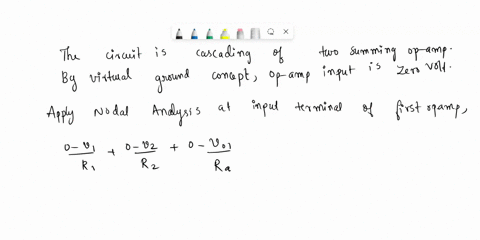 The circuit is cascading of two summing op-amp.
By virtual ground concept, op-amp input is zero volt.
Apply Nodal Analysis at input terminal of first opamp,
0-v1/R1 + 0-v2/R2 + 0-Vo1/Ra